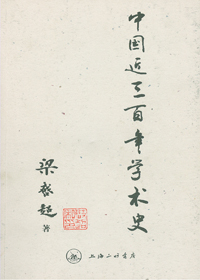 中国近三百年学术史
梁启超
著
上海三联书店